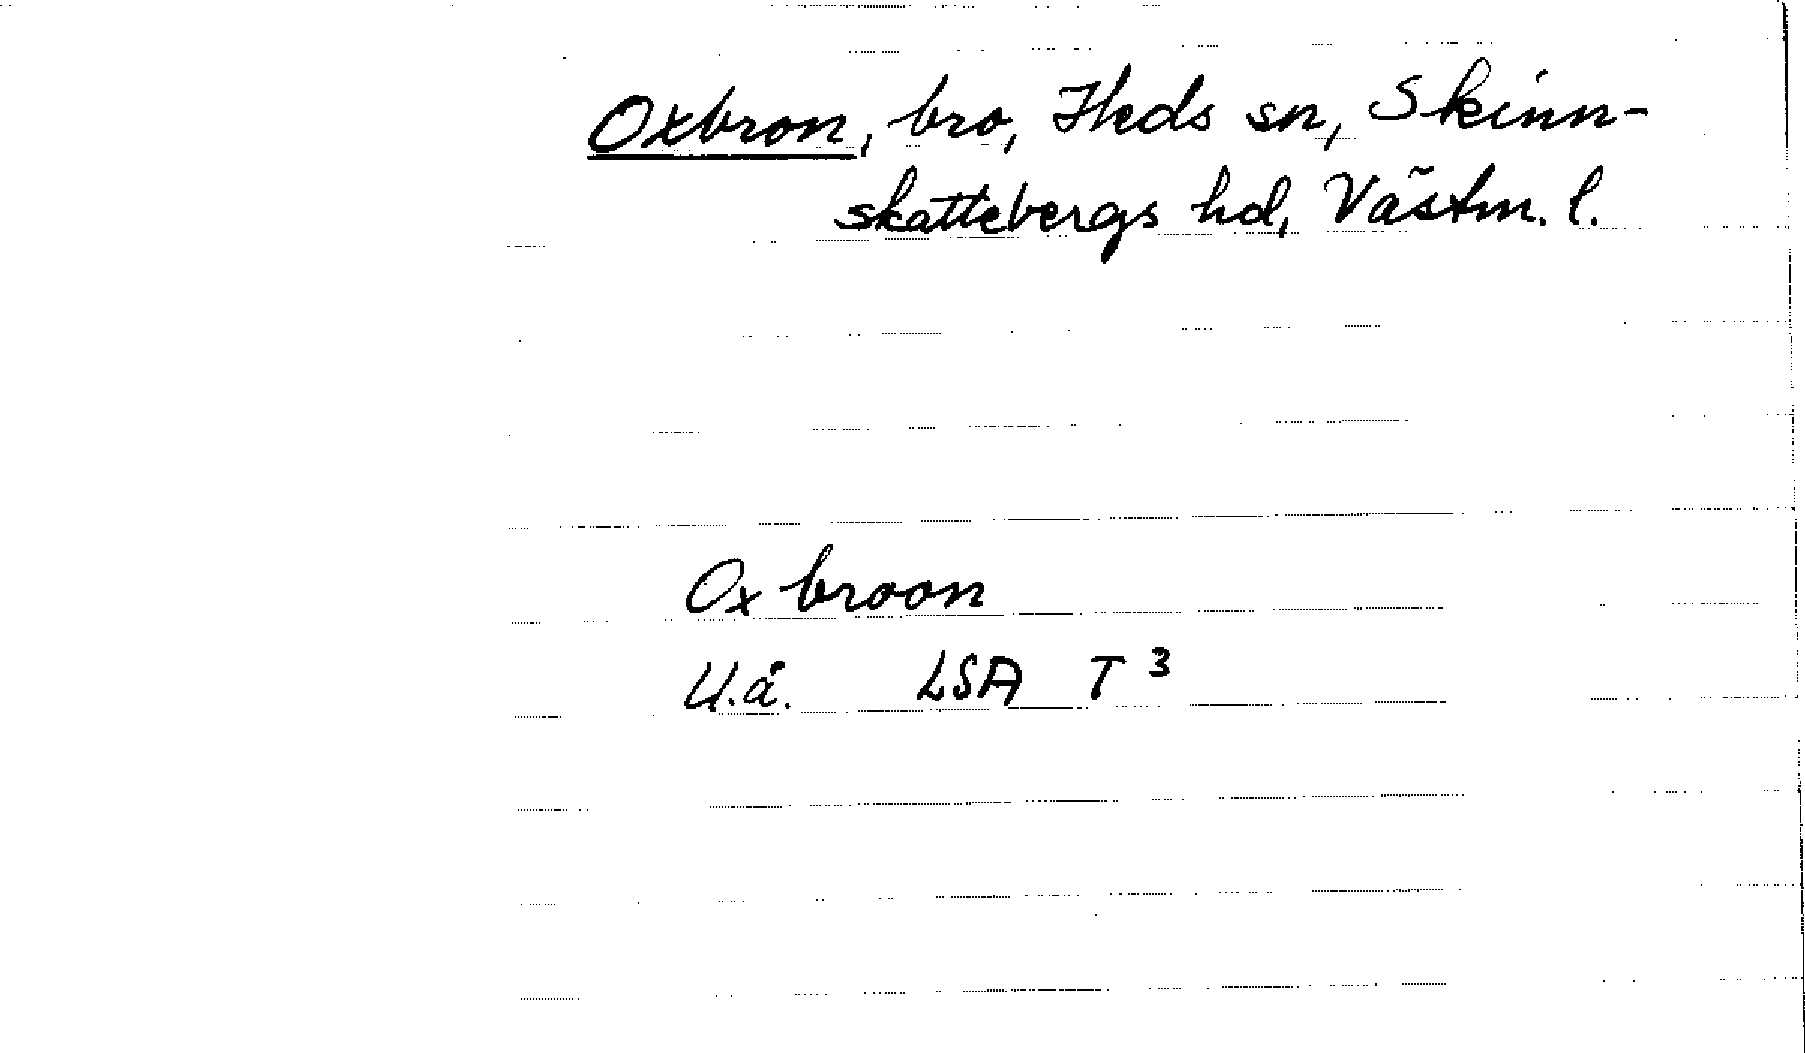 Oxbron, bro, Heds sn, Skinn-
skattebergs hd, Västm. l.
Ox broon
U.å. LSA T³